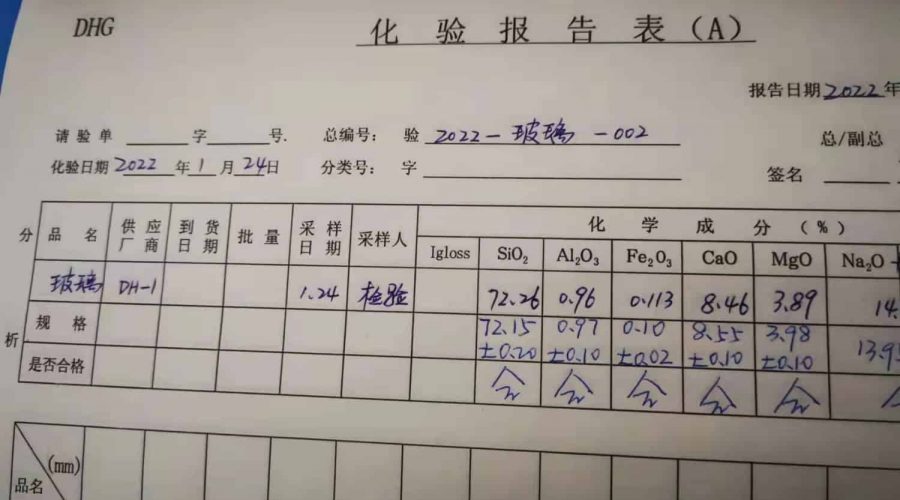 DHG
化验报告表(A)
报告日期2022年
请验单 字 号. 总编号: 验 2022-玻璃-002
总/副总
化验日期2022年1月24日 分类号: 字
签名
分析
品名 供应厂商 到货日期 批量 采样日期 采样人 化学成分(%)
Igloss SiO₂ Al₂O₃ Fe₂O₃ CaO MgO Na₂O
玻璃 DH-1 1.24 检验 72.26 0.96 0.113 8.46 3.89 14.
规格 72.15 0.97 0.10 8.55 3.98 13.9
±0.20 ±0.10 ±0.02 ±0.10 ±0.10
是否合格 合 合 合 合 合
(mm)
品名